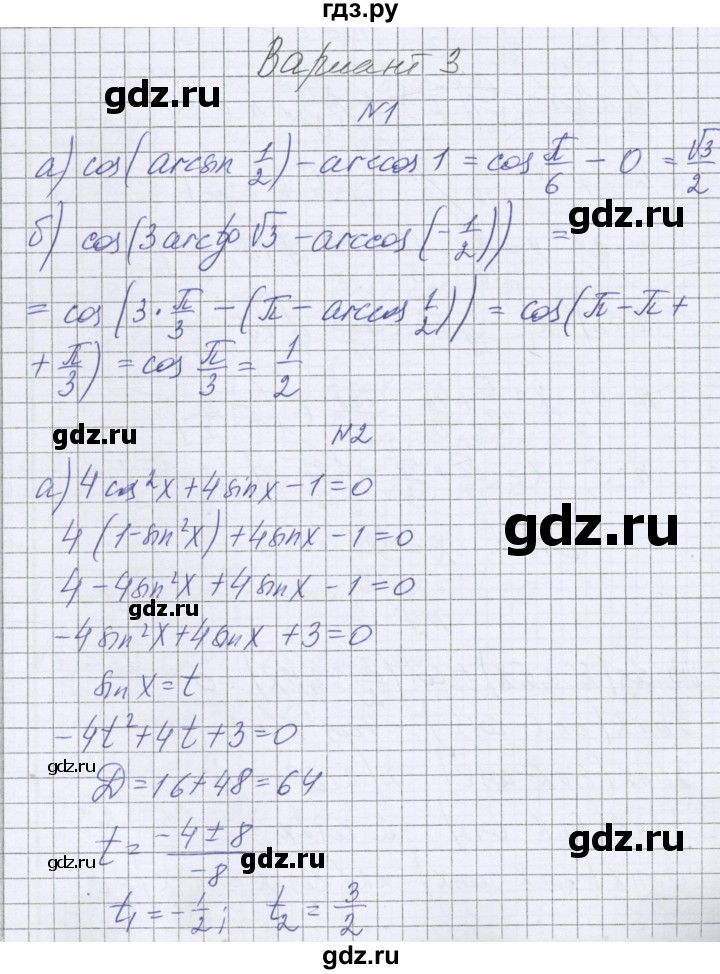 гдз.ру
Вариант 3
gdz.ru
№1
а) cos(arcsin 1/2) - arccos 1 = cos π/6 - 0 = √3/2
gdz.ru
б) cos(3 arctg √3 - arccos(-1/2)) =
= cos(3·π/3 - (π - arccos 1/2)) = cos(π - π +
+ π/3) = cos π/3 = 1/2
gdz.ru
№2
а) 4 cos²x + 4 sin x - 1 = 0
gdz.ru
4(1 - sin²x) + 4 sin x - 1 = 0
4 - 4 sin²x + 4 sin x - 1 = 0
gdz.ru
-4 sin²x + 4 sin x + 3 = 0
sin x = t
-4t² + 4t + 3 = 0
gdz.ru
D = 16 + 48 = 64
gdz.ru
t = (-4 ± 8)/-8
gdz.ru
gdz.ru
t₁ = -1/2; t₂ = 3/2
gdz.ru